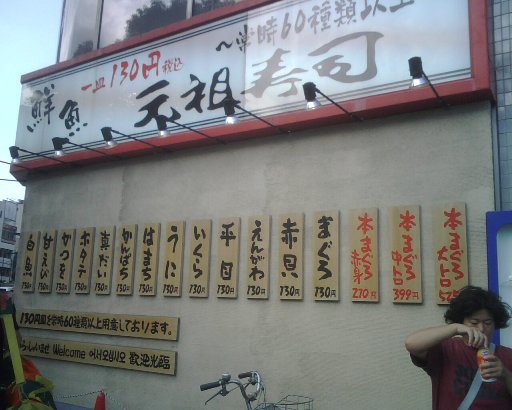 ~常時60種類以上
一皿130円税込
鮮魚 元祖寿司
白魚 130円
甘えび 130円
かつを 130円
ホタテ 130円
真だい 130円
かんぱち 130円
はまち 130円
うに 130円
いくら 130円
平目 130円
えんがわ 130円
赤貝 130円
まぐろ 130円
本まぐろ赤身 270円
本まぐろ中トロ 399円
本まぐろ大トロ
130円皿を常時60種類以上用意しております。
いらっしゃいませ Welcome 어서오십시오 歡迎光臨